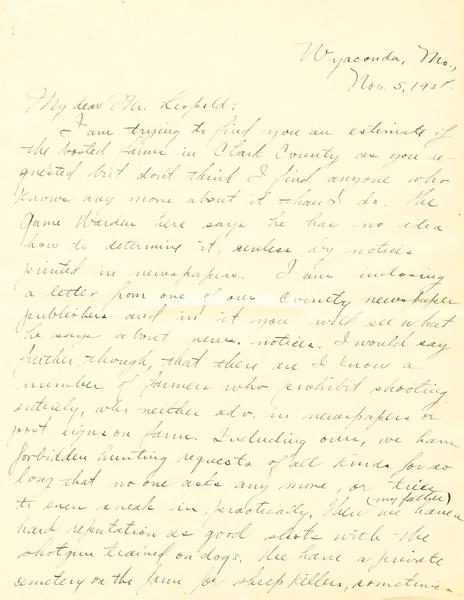 Wyaconda, Mo.,
Nov. 5, 1928.
My dear Mr. Leopold:
I am trying to find you an estimate of
the posted farms in Clark County as you re-
quested but don't think I find anyone who
knows any more about it than I do. The
Game Warden here says he has no idea
how to determine it, unless by notices
printed in newspapers. I am inclosing
a letter from one of our County newspaper
publishers and in it you will see what
he says about news. notices. I would say
further, though, that there are I know a
number of farmers who prohibit shooting
entirely, who neither adv. in newspapers or
post signs on farm. Including ours, we have
forbidden hunting requests of all kinds for so
long that no one asks any more, or tries
to even sneak in, practically. Then we (my father) have a
hard reputation as good shots with the
shotgun trained on dogs. We have a private
cemetery on the farm for sheep killers, sometimes